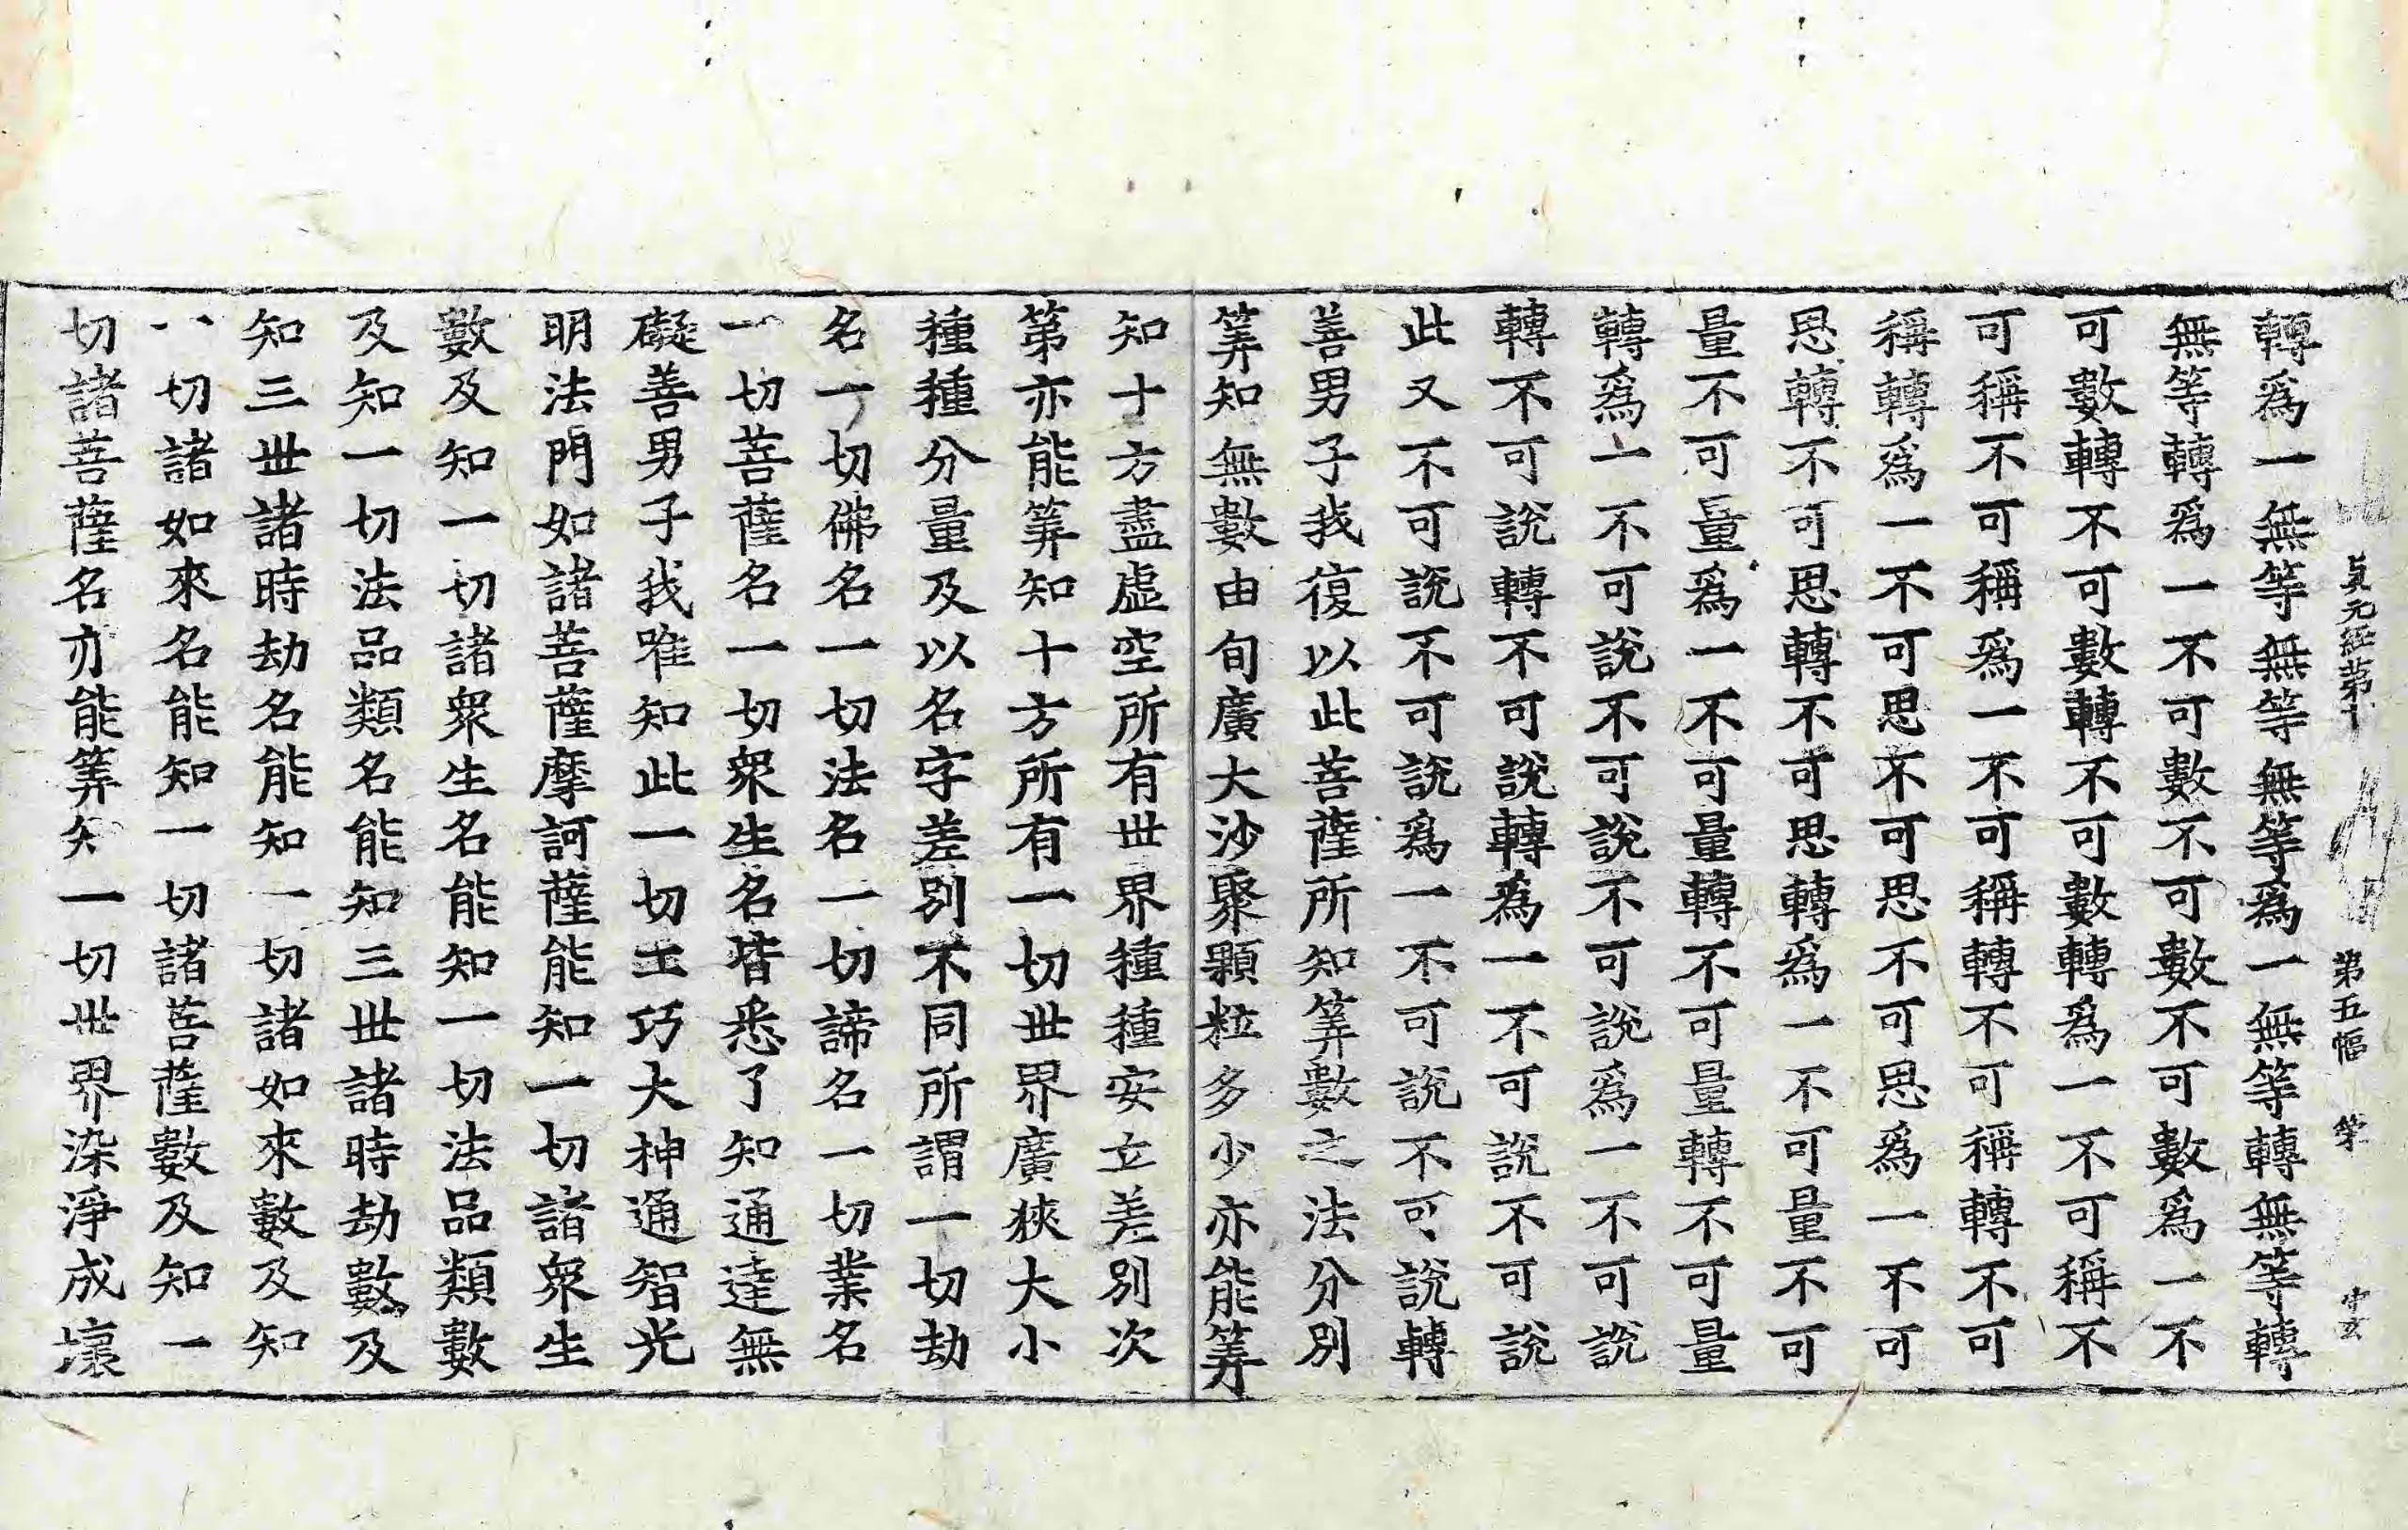 貞元經第十 第五幅 第 中玄
轉爲一無等無等無等爲一無等轉無等轉
無等轉爲一不可數不可數不可數爲一不
可數轉不可數轉不可數轉爲一不可稱不
可稱不可稱爲一不可稱轉不可稱轉不可
稱轉爲一不可思不可思不可思爲一不可
思轉不可思轉不可思轉爲一不可量不可
量不可量爲一不可量轉不可量轉不可量
轉爲一不可說不可說不可說爲一不可說
轉不可說轉不可說轉爲一不可說不可說
此又不可說不可說爲一不可說不可說轉
善男子我復以此菩薩所知筭數之法分別
筭知無數由旬廣大沙聚顆粒多少亦能筭
知十方盡虛空所有世界種種安立差別次
第亦能筭知十方所有一切世界廣狹大小
種種分量及以名字差別不同所謂一切劫
名一切佛名一切法名一切諦名一切業名
一切菩薩名一切眾生名皆悉了知通達無
礙善男子我唯知此一切工巧大神通智光
明法門如諸菩薩摩訶薩能知一切諸眾生
數及知一切諸眾生名能知一切法品類數
及知一切法品類名能知三世諸時劫數及
知三世諸時劫名能知一切諸如來數及知
一切諸如來名能知一切諸菩薩數及知一
切諸菩薩名亦能筭知一切世界染淨成壞